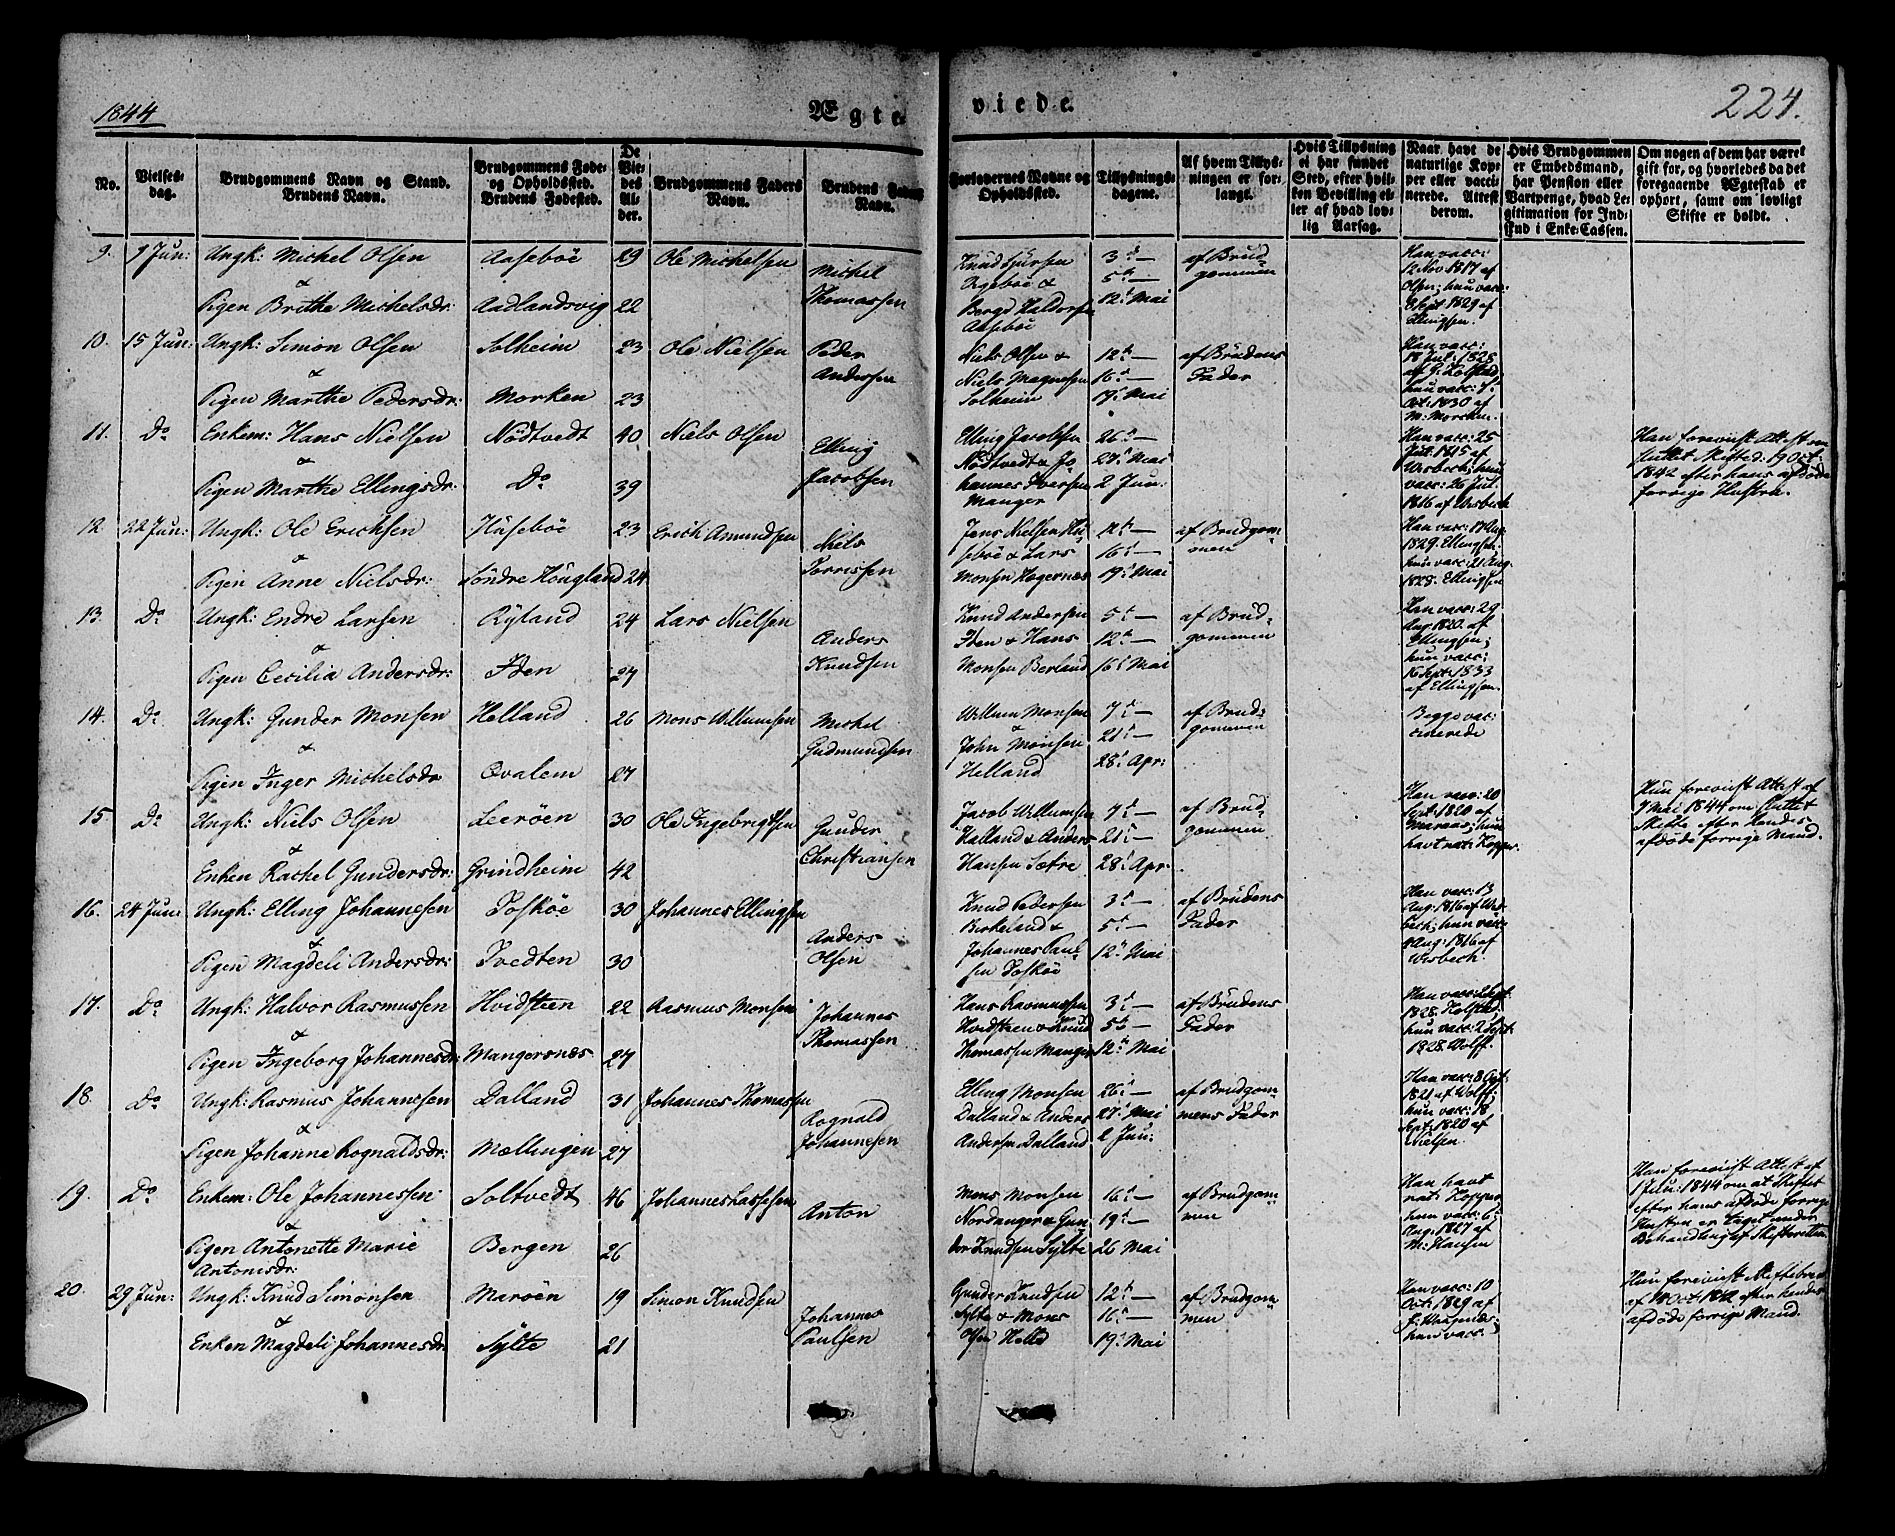 1844
Ægte viede. 224.
No. | Vielses-dag. | Brudgommens Navn og Stand. Brudens Navn. | Brudgommens Føde- og Opholdssted. Brudens Fødested. | De Viedes Alder. | Brudgommens Faders Navn. | Brudens Faders Navn. | Forlovernes Navne og Opholdssted. | Tillysnings-dagene. | Af hvem Tillysningen er forlangt. | Hvis Tillysning ei har fundet Sted, efter hvilken Bevilling eller af hvad lovlig Aarsag. | Naar havt de naturlige Kopper eller vaccinerede. Attest derom. | Hvis Brudgommen er Embedsmand, har Pension eller Vartpenge, hvad Legitimation for Indskud i Enke-Cassen. | Om nogen af dem har været gift før, og hvorledes da det foregaaende Ægteskab er ophørt, samt om lovligt Skifte er holdt.
9. | 9 Jun: | Ungk: Michel Olsen | Aasebøe | 29 | Ole Michelsen
& Pigen Brithe Michelsdr: | Aadlandsvig | 22 | Michel Thomassen
Knud Sjursen | 3d —
& | 5te —
Aasebøe | 12t Mai | af Brudgommen
Han vacc: 12 Nov 1817 af Olsen; hun vacc: Sept 1829 af Ellingsen.
10. | 15 Jun: | Ungk: Simon Olsen | Solheim | 23 | Ole Nielsen
& Pigen Marthe Pedersdr: | Morken | 23 | Peder Andersen
Niels Olsen & | 12te —
Niels Magnesen | 16d —
Solheim | 19t Mai | af Brudens Fader
Han vacc: 18 Jul: 1828 af G. Kolstad, hun vacc: Oct: 1830 af M: Morken.
11. | Do | Enkem: Hans Nielsen | Nödtvedt | 40 | Niels Olsen
& Pigen Marthe Ellingsdr: | Do | 39 | Elling Jacobsen
Elling Jacobsen | 26de —
Nödtvedt & Jo- | 27t Mai
hannes Iversen | 2 Jun:
Manger
Han vacc: 25 1815 af Wisbech; hun vacc: 26 Jul: 1816 af Wisbech
Han foreviist Attest om sluttet Skifte d: 19 Oct: 1842 efter hans afdøde forrige Hustru.
12. | 22 Jun: | Ungk: Ole Erichsen | Hüsebøe | 23 | Erich Amundsen
& Pigen Anne Nielsdr: | Söndre Höugland | 24 | Niels Torrissen
Jens Nielsen Hü- | 12te —
sebøe & Lars | 16d —
Monsen Hogernæs | 19t Mai | af Brudgommen
Han vacc: 17 Aug: 1829. Ellingsen: hun vacc: 21 Aug. 1828. Ellingsen
13. | Do | Ungk: Endre Larsen | Ryland | 24 | Lars Nielsen
& Pigen Cecilia Andersdr: | Iden | 27 | Anders Knudsen
Knud Andersen | 5te —
Iden & Hans | 12te —
Monsen Berland | 16t Mai | af Brudgommen
Han vacc: 29 Aug: 1820. af Ellingsen; hun vacc: 16 Sept: 1833 af Ellingsen.
14. | Do | Ungk: Gunder Monsen | Helland | 26 | Mons Willumsen
& Pigen Inger Michelsdr | Qvalem | 27 | Michel Gudmundsen
Willum Monsen | 7d —
& John Monsen | 21d —
Helland | 28t Apr: | af Brudgommen
Begge vaccinerede
15 | Do | Ungk: Niels Olsen | Leerøen | 30 | Ole Ingebrigtsen
& Enken Rachel Gundersdr: | Grindheim | 42 | Gunder Christiansen
Jacob Willumsen | 7d —
Halland & Anders | 21d —
Hansen Sætre | 28t Apr. | af Brudgommen
Han vacc: 20 Sept: 1820 af hun havt nat: Kopper.
Hun foreviist Attest af 9 Mai 1844 om sluttet Skifte efter Hendes afdøde forrige Mand.
16. | 24 Jun: | Ungk: Elling Johannesen | Toskøe | 30 | Johannes Ellingsen
& Pigen Magdeli Andersdr: | Tvedten | 30 | Anders Olsen
Knud Pedersen | 3d —
Birkeland & | 5te —
Johannes Paul- | 12te Mai
sen Toskøe | af Brudens Fader
Han vacc: 13 Aug: 1816 af Wisbech; hun vacc: Aug: 1816 af Wisbech.
17. | Do | Ungk: Halvor Rasmussen | Hvidsteen | 22 | Rasmus Monsen
& Pigen Ingeborg Johannesdr: | Mangersnæs | 27 | Johannes Thomassen
Hans Rasmussen | 3d —
Hvidsteen & Knud | 5te —
Thomassen Manger | 12te Mai | af Brudens Fader
Han vacc: Sept: 1828. Kolstad; hun vacc: 2 Sept 1828. Wolff.
18. | Do | Ungk: Rasmus Johannesen | Dalland | 31 | Johannes Thomassen
& Pigen Johanne Rognaldsdr: | Mællingen | 27 | Rognald Johannesen
Elling Monsen | 26d —
Dalland & Anders | 27t Mai
Andersen Dalland | 2 Jun: | af Brudgommens Fader
Han vacc: 8 Oct: 1821 af Wolff; hun vacc: 18 Sept: 1820 af Nielsen.
19. | Do | Enkem: Ole Johannessen | Soltvedt | 46 | Johannes Lassesen
& Pigen Antonette Marie Antonisdr: | Bergen | 26 | Anton
Mons Monsen | 16d —
Nordanger & Gun- | 19de —
der Knudsen Sylte | 26 Mai | af Brudgommen
Han havt nat: Kopper hun vacc: 6 Aug: 1817 af M: Hansen
Han foreviist Attest af 1 Jun: 1844 om at Skiftet efter hans afdøde forrige Hustru er taget under Behandling af Skifteretten.
20. | 29 Jun: | Ungk: Knud Simonsen | Marøen | 19 | Simon Knudsen
& Enken Magdeli Johannesdr | Sylte | 21 | Johannes Paulsen
Gunder Knudsen | 12te —
Sylte & Mons | 16de —
Olsen | 19t Mai | af Brudgommen
Han vacc: 10 Oct: 1829 af hun vacc:
Hun foreviist Skiftebrev af 18 Oct 1842 efter hendes afdøde forrige Mand.